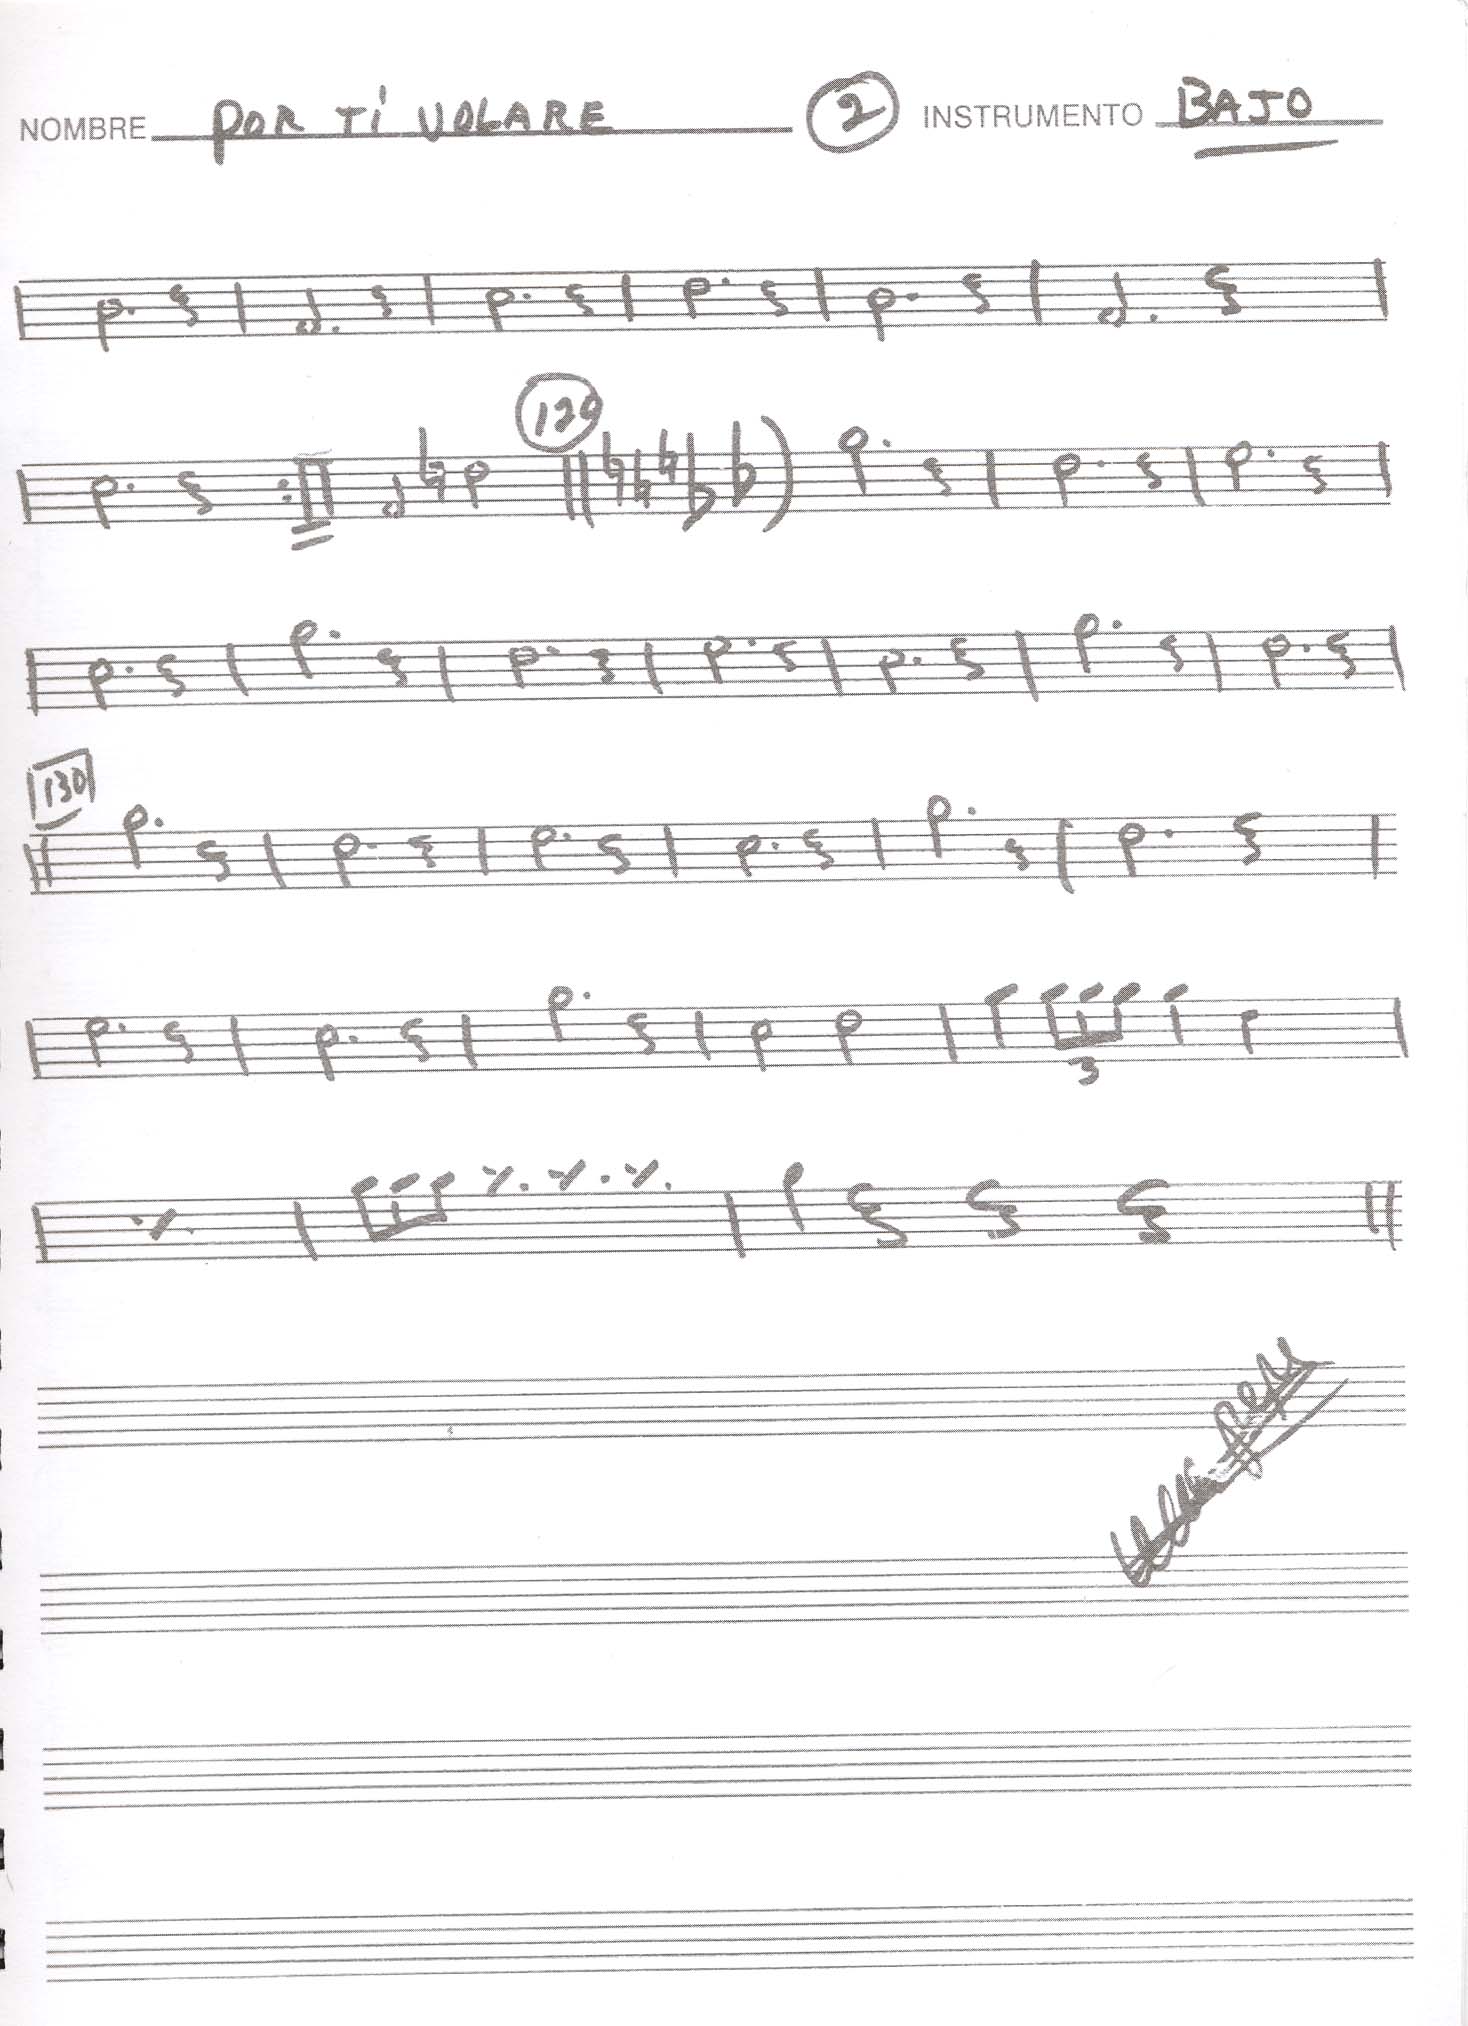 NOMBRE POR TI VOLARE 2 INSTRUMENTO BAJO
129
130
3